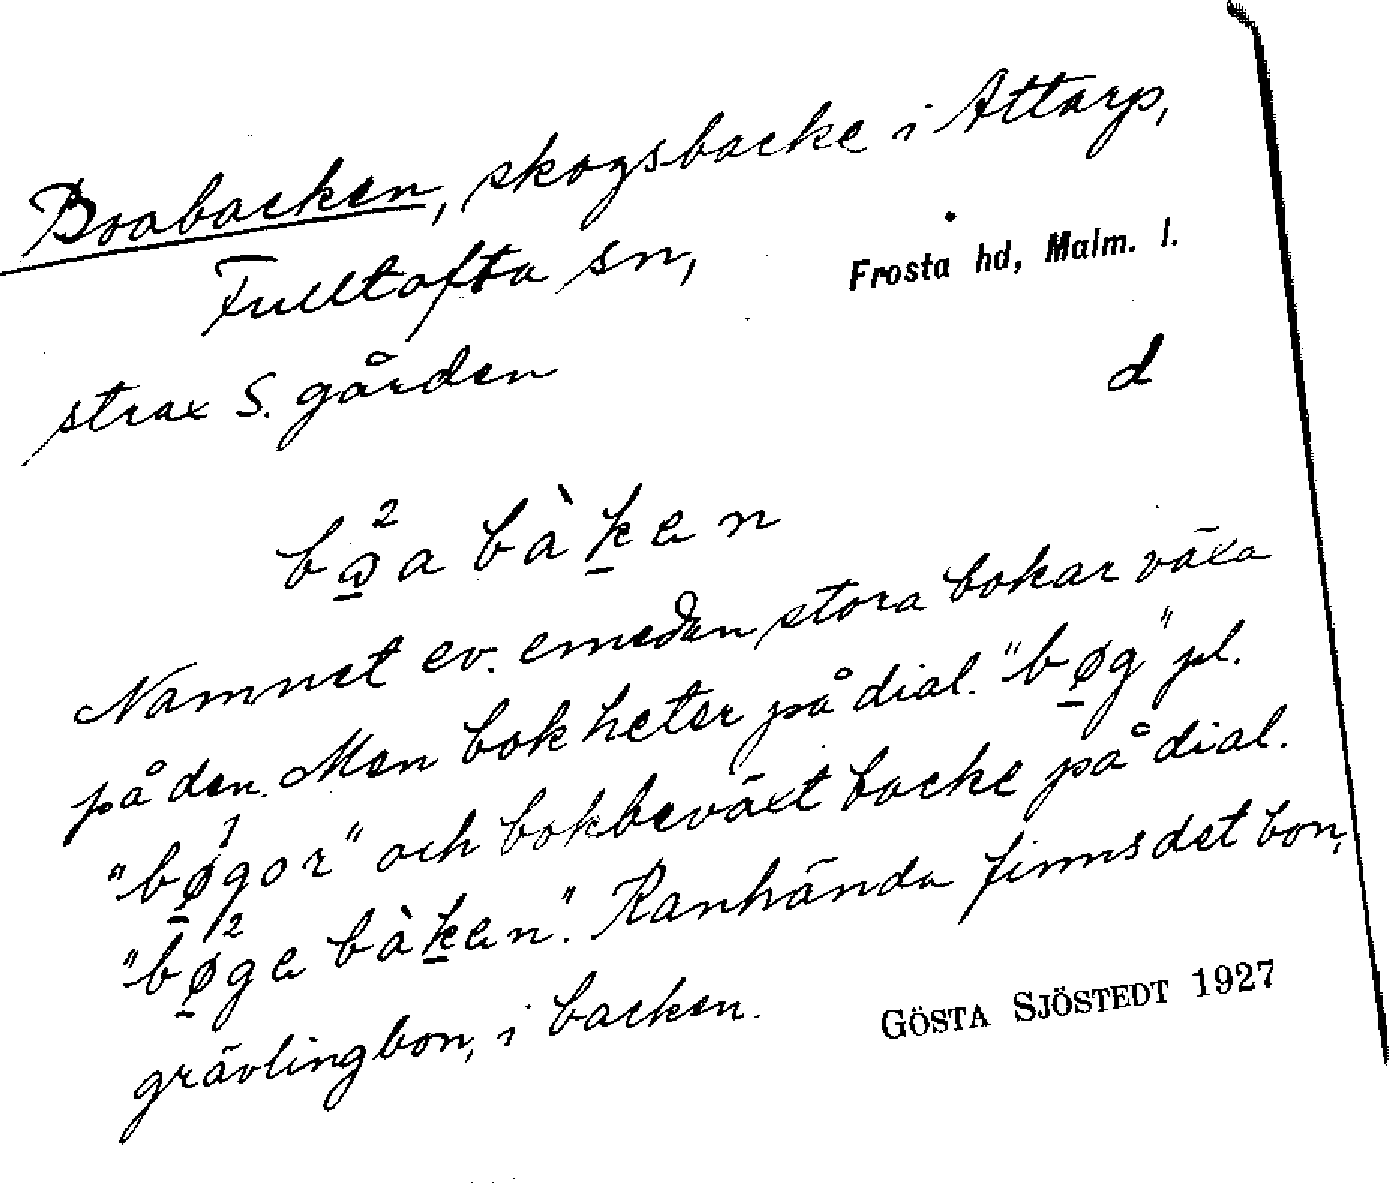 Boabacken, skogsbacke i Attarp,
Fulltofta sn, Frosta hd, Malm. l.
strax S. gården d
bω̱²a bàḵen
Namnet ev. emedan stora bokar växa
på den. Men bok heter på dial. "bø̱g" pl.
"bø̱¹gor" och bokbeväxt backe på dial.
"bø̱²ge bàḵen". Kanhända finns det bon,
grävlingbon, i backen. GÖSTA SJÖSTEDT 1927